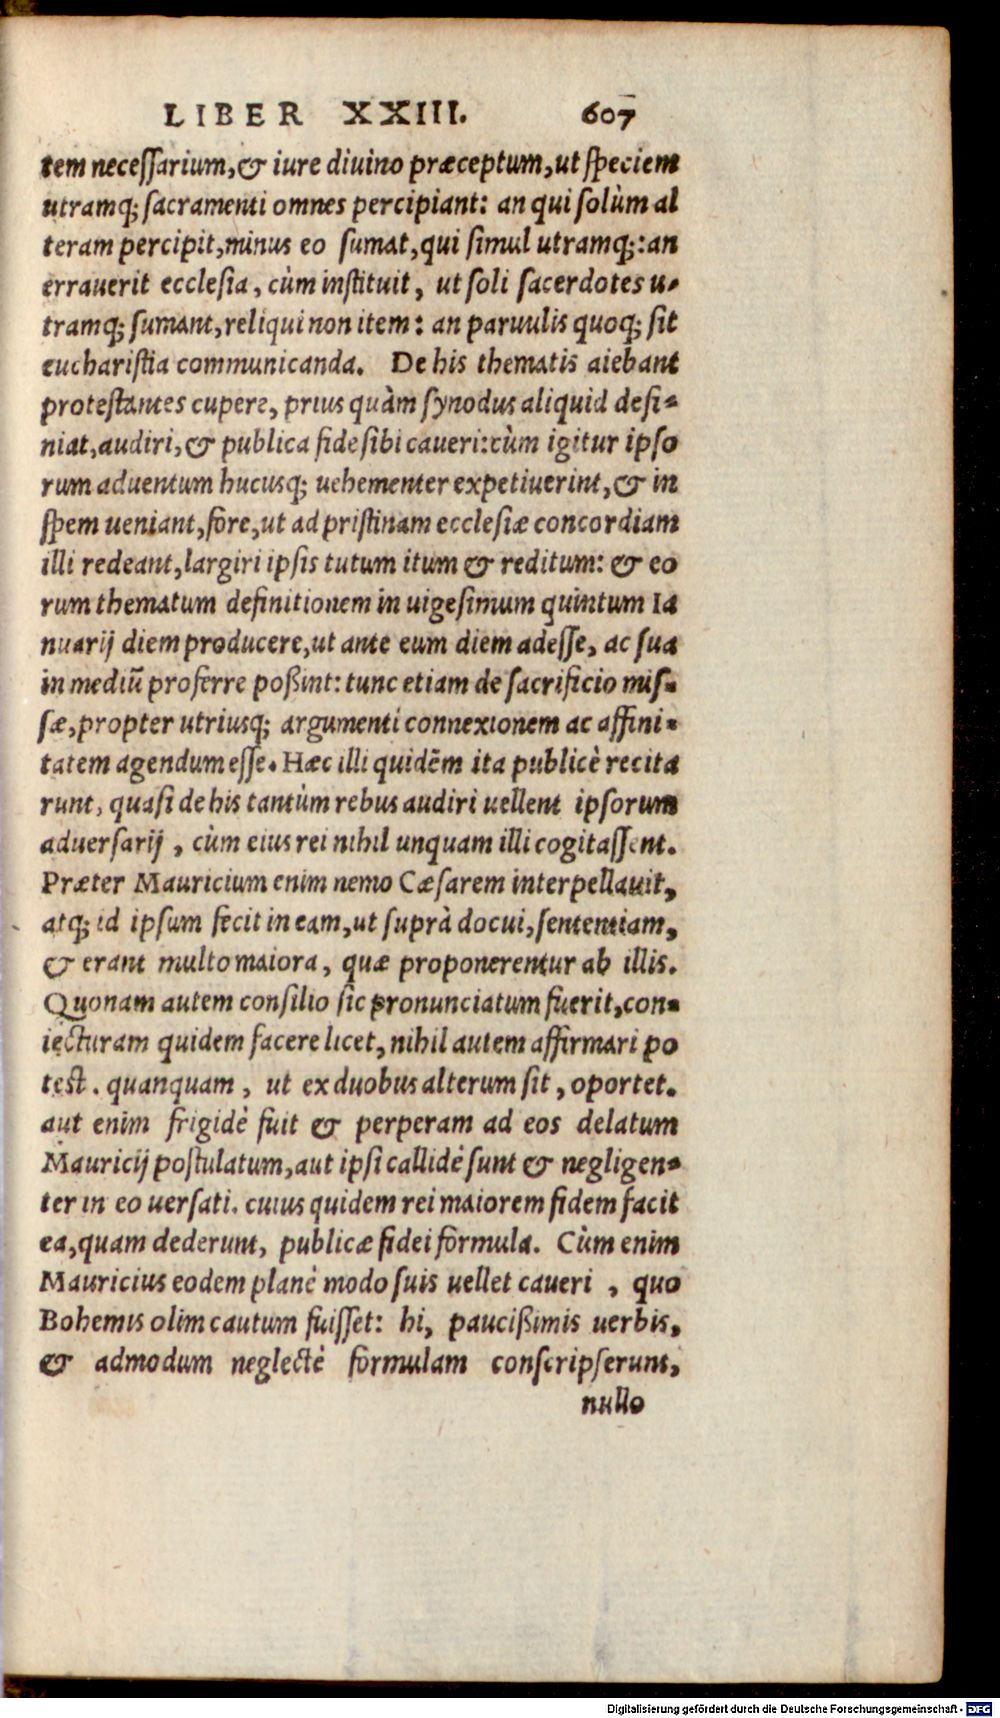 LIBER XXIII. 607
tem necessarium, & iure diuino præceptum, ut speciem
utramq; sacramenti omnes percipiant: an qui solùm al
teram percipit, minus eo sumat, qui simul utramq;: an
errauerit ecclesia, cùm instituit, ut soli sacerdotes u-
tramq; sumant, reliqui non item: an paruulis quoq; sit
eucharistia communicanda. De his thematis aiebant
protestantes cupere, prius quàm synodus aliquid defi-
niat, audiri, & publica fide sibi caueri: cùm igitur ipso
rum aduentum hucusq; uehementer expetiuerint, & in
spem ueniant, fore, ut ad pristinam ecclesiæ concordiam
illi redeant, largiri ipsis tutum itum & reditum: & eo
rum thematum definitionem in uigesimum quintum Ia
nuarij diem producere, ut ante eum diem adesse, ac sua
in mediũ proferre poßint: tunc etiam de sacrificio mis-
sæ, propter utriusq; argumenti connexionem ac affini-
tatem agendum esse. Hæc illi quidẽm ita publicè recita
runt, quasi de his tantùm rebus audiri uellent ipsorum
aduersarij, cùm eius rei nihil unquam illi cogitassent.
Præter Mauricium enim nemo Cæsarem interpellauit,
atq; id ipsum fecit in eam, ut suprà docui, sententiam,
& erant multo maiora, quæ proponerentur ab illis.
Quonam autem consilio sic pronunciatum fuerit, con-
iecturam quidem facere licet, nihil autem affirmari po
test. quanquam, ut ex duobus alterum sit, oportet.
aut enim frigidè fuit & perperam ad eos delatum
Mauricij postulatum, aut ipsi callidè sunt & negligen-
ter in eo uersati. cuius quidem rei maiorem fidem facit
ea, quam dederunt, publicæ fidei formula. Cùm enim
Mauricius eodem planè modo suis uellet caueri, quo
Bohemis olim cautum fuisset: hi, paucißimis uerbis,
& admodum neglectè formulam conscripserunt,
nullo
Digitalisierung gefördert durch die Deutsche Forschungsgemeinschaft - DFG